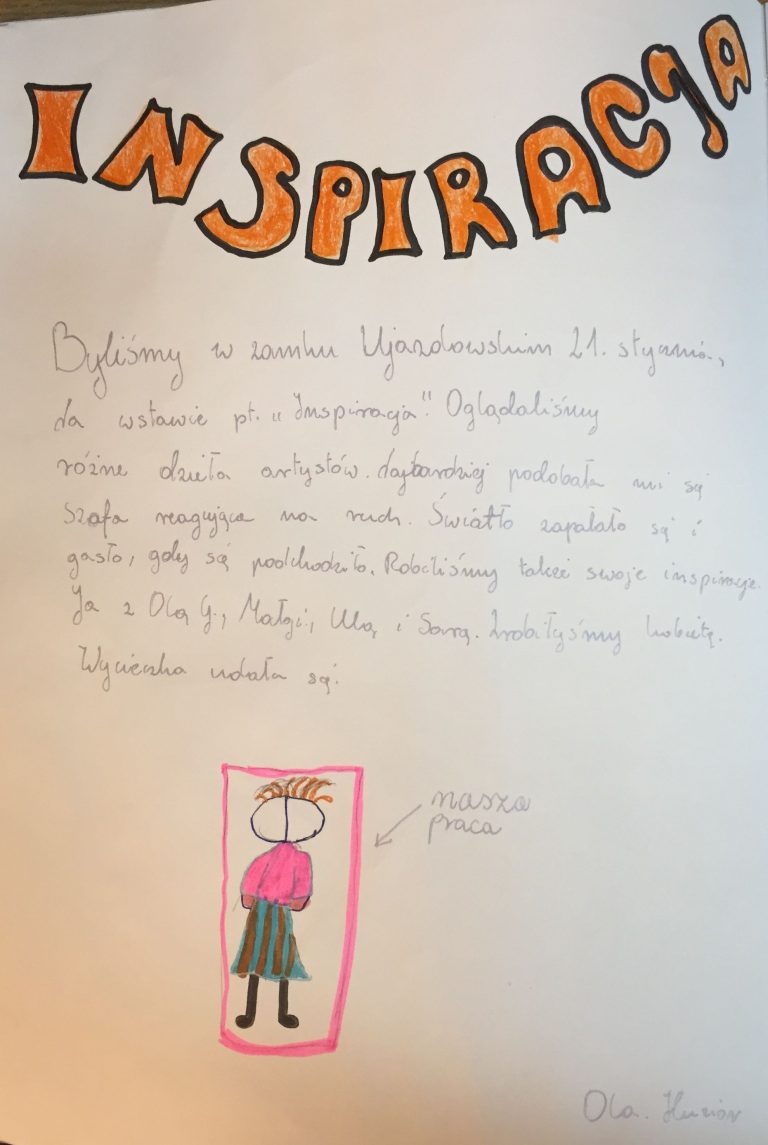 INSPIRACJA
Byliśmy w zamku Ujazdowskim 21. stycznia,
na wstawie pt. „Inspiracja". Oglądaliśmy
różne dzieła artystów. Najbardziej podobała mi są
szafa reagująca na ruch. Światło zapalało są i
gasło, gdy są podchodziło. Robiliśmy także swoje inspiracje.
Ja z Olą G., Małgą, Ulą i Sarą. Zrobiłyśmy kobietę.
Wycieczka udała są.
nasza
praca
Ola.